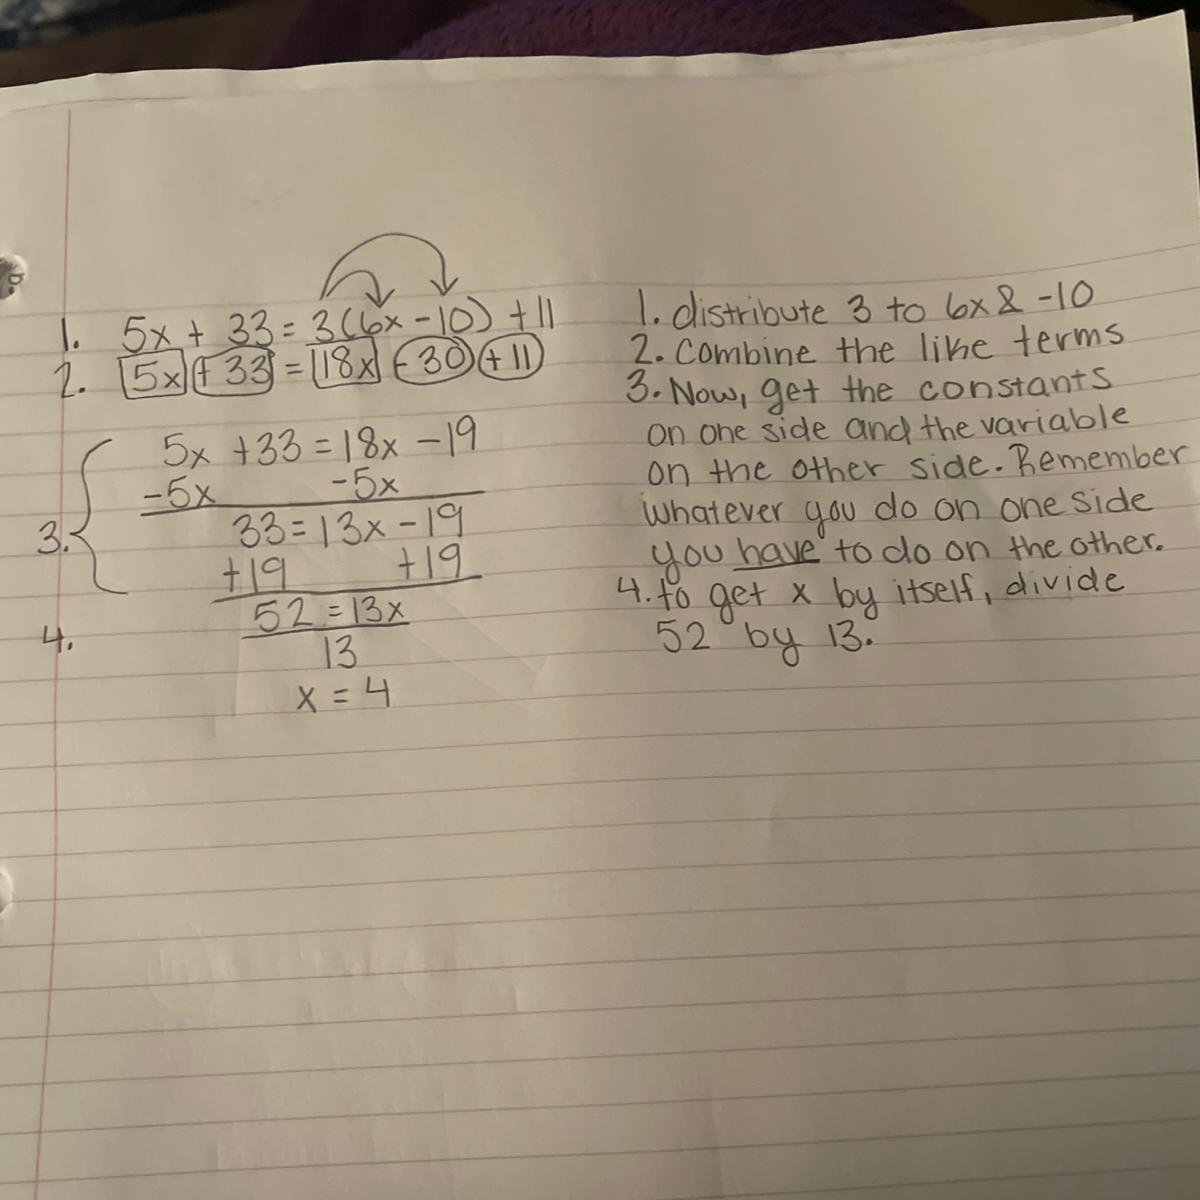 1. 5x + 33 = 3(6x - 10) + 11
2. 5x + 33 = 18x - 30 + 11
5x + 33 = 18x - 19
-5x -5x
3. 33 = 13x - 19
+19 +19
4. 52 = 13x
13
x = 4
1. distribute 3 to 6x & -10
2. Combine the like terms
3. Now, get the constants
on one side and the variable
on the other side. Remember
whatever you do on one side
you have to do on the other.
4. to get x by itself, divide
52 by 13.